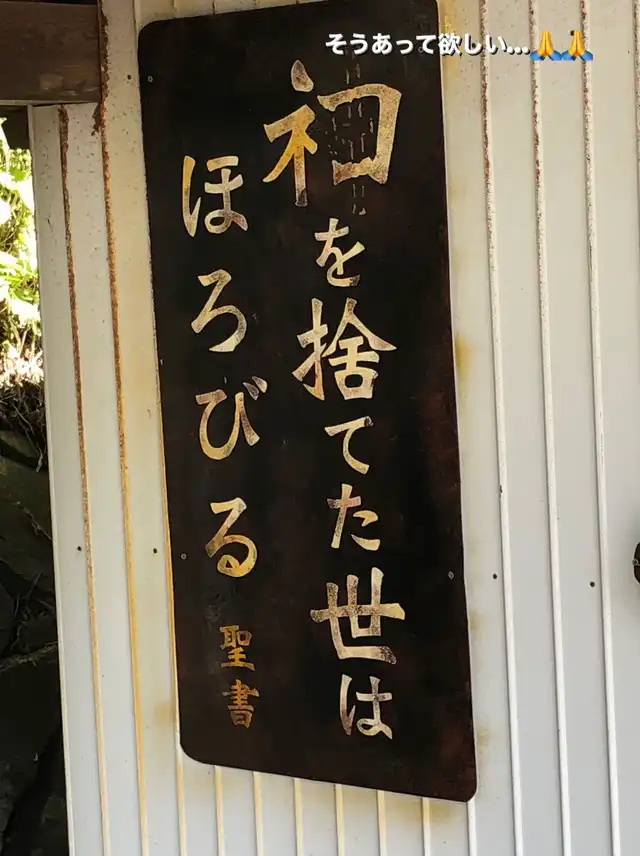 そうあって欲しい…🙏🙏
ネコを捨てた世は
ほろびる
聖書